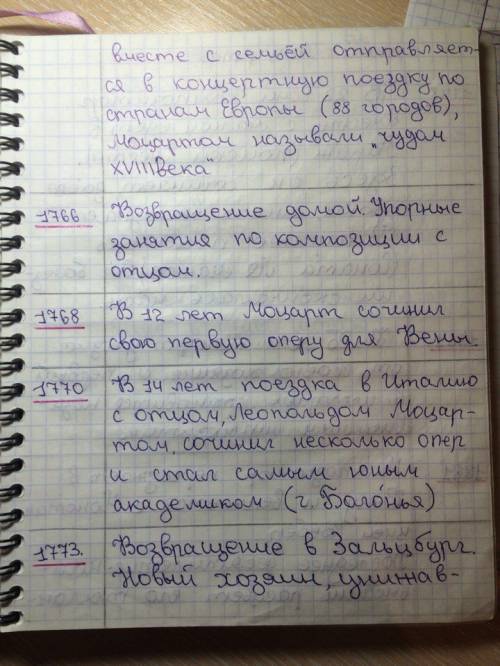 вместе с семьёй отправляет-
ся в концертную поездку по
странам Европы (88 городов),
Моцартом называли „чудом
XVIII века"
1766 Возвращение домой. Упорные
занятия по композиции с
отцом.
1768 В 12 лет Моцарт сочинил
свою первую оперу для Вены.
1770 В 14 лет поездка в Италию
с отцом, Леопольдом Моцар-
том, сочинил несколько опер
и стал самым юным
академиком (г. Боло́нья)
1773. Возвращение в Зальцбург.
Новый хозяин, унижав-